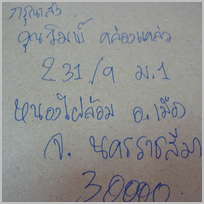 กรุณาส่ง
คุณวิมพ์ คล่องแคล่ว
231/9 ม.1
หนองไผ่ล้อม อ.เมือง
จ. นครราชสีมา
30000.